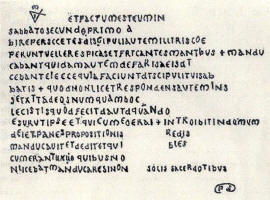 ETFACTUMESTEUMIN
SABBATOSECUNDOPRIMO À
BIREPERSCCETESDISCIPULIAUTEMILLIRISCOE
PERUNTVELLERESPICASETFRICANTESMANIBUS + MANDU
CABANTQUIDAMAUTEMDEFARISAEISDT
CEBANTEIECCEQUIAFACIUNTDISCIPULITUISAB
BATIS + QUODNONLICETRESPONDENSAUTEMINS
SETXTTADEOSNUMQUAMHOC
LECISTISQUODFECITDAUTDQUANDO
ESURUTIPSEETQUICUMEOERAT + INTROIBITINDOMUM
DEIETPANESPROPOSITIONIS REDIS
MANDUCAUITETDEDITETQUI BLES
CUMERANT QUIBUSNO
NLICEBATMANDUCARESINON SOLIS SACERDOTIBUS